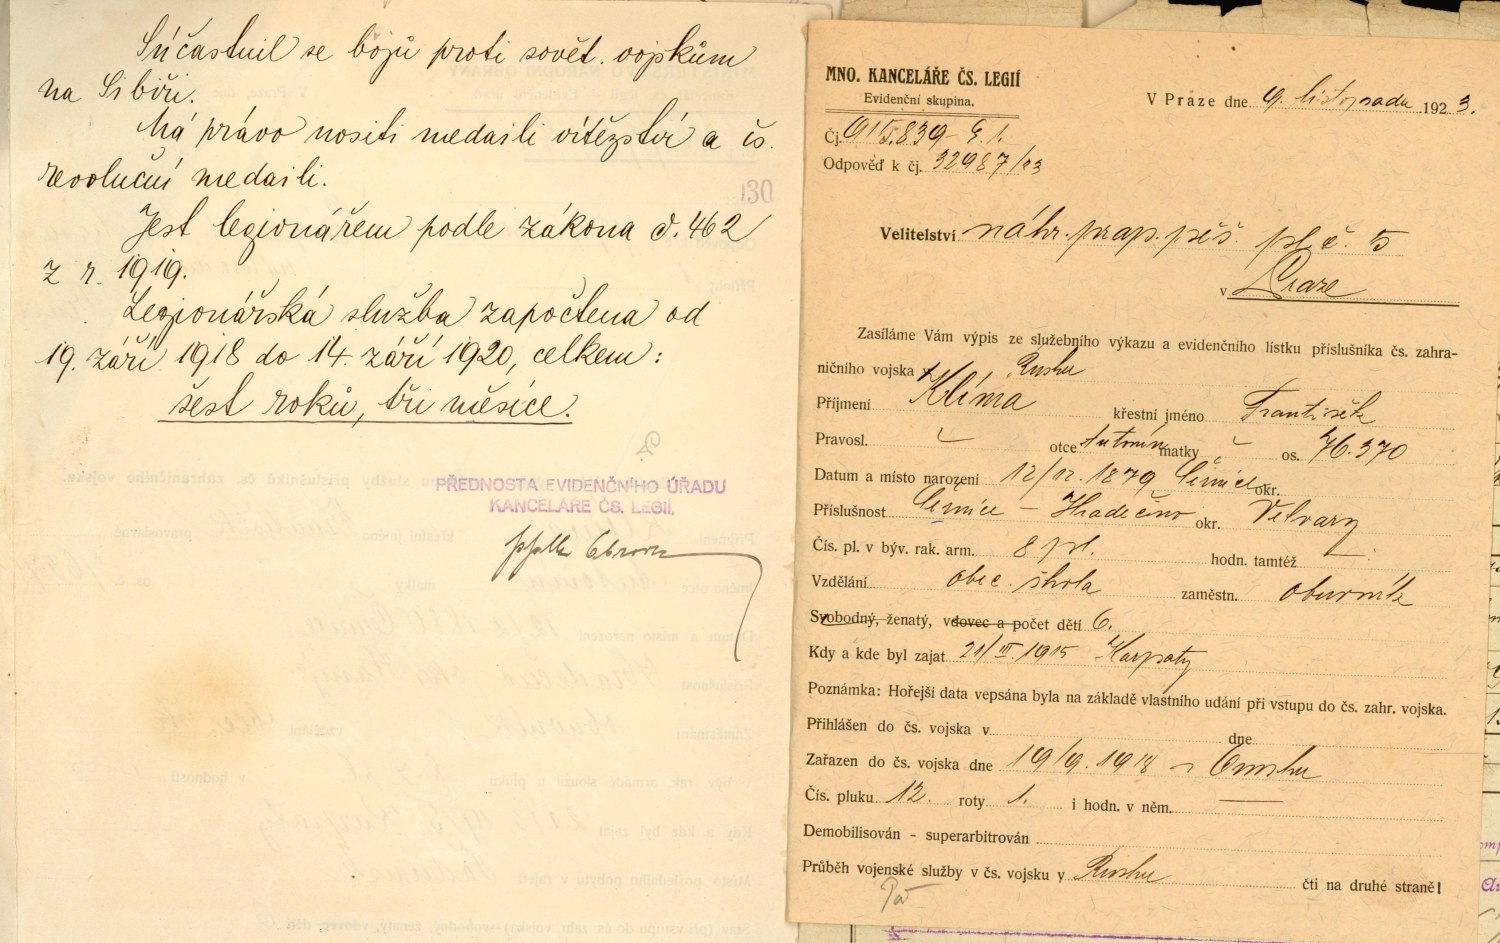 Súčastnil se bojů proti sovět. vojskům
na Sibiři.
Má právo nositi medaili vítězství a čs.
revoluční medaili.
Jest legionářem podle zákona č. 462
z r. 1919.
Legionářská služba započtena od
19. září 1918 do 14. září 1920, celkem:
šest roků, tři měsíce.
PŘEDNOSTA EVIDENČNÍHO ÚŘADU
KANCELÁŘE ČS. LEGIÍ.
MNO. KANCELÁŘE ČS. LEGIÍ
Evidenční skupina.
V Praze dne 9. listopadu 1923.
Čj.
Odpověď k čj. 32987/23
Velitelství náhr. prap. pěš. pl. č. 5
v Praze
Zasíláme Vám výpis ze služebního výkazu a evidenčního lístku příslušníka čs. zahra-
ničního vojska v Rusku
Příjmení Klíma křestní jméno František
Pravosl. otce Antonín matky os. 76.370
Datum a místo narození 12/12. 1879 okr.
Příslušnost okr. Velvary
Čís. pl. v býv. rak. arm. 8 pl. hodn. tamtéž
Vzdělání obec. škola zaměstn. obuvník
Svobodný, ženatý, vdovec a počet dětí 6.
Kdy a kde byl zajat 21/III. 1915 Karpaty
Poznámka: Hořejší data vepsána byla na základě vlastního udání při vstupu do čs. zahr. vojska.
Přihlášen do čs. vojska v dne
Zařazen do čs. vojska dne 19/9. 1918 v Omsku
Čís. pluku 12. roty 1. i hodn. v něm.
Demobilisován - superarbitrován
Průběh vojenské služby v čs. vojsku v Rusku čti na druhé straně!